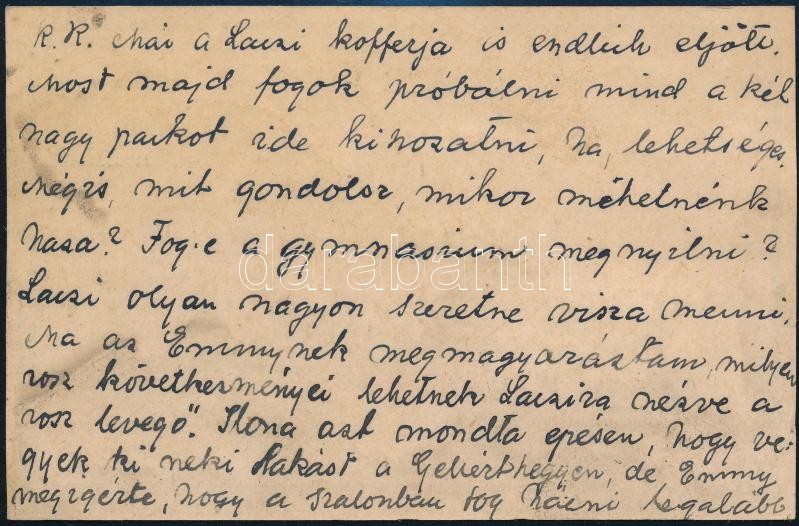 K. K. Mái a Laczi kofferja is endlich eljött.
Most majd fogok próbálni mind a két
nagy packot ide kihozatni, ha, lehetséges.
Mégis, mit gondolsz, mikor mehetnénk
haza? Fog-e a gymnasium megnyilni?
Laczi olyan nagyon szeretne vissza menni.
Ma az Emmynek megmagyaráztam, milyen
rosz következményei lehetnek Laczira nézve a
rosz levegő". Ilona azt mondta epésen, hogy ve-
gyek ki neki lakást a Gellérthegyen, de Emmy
megigérte, hogy a szalonban fog hálni legalább,
darabanth